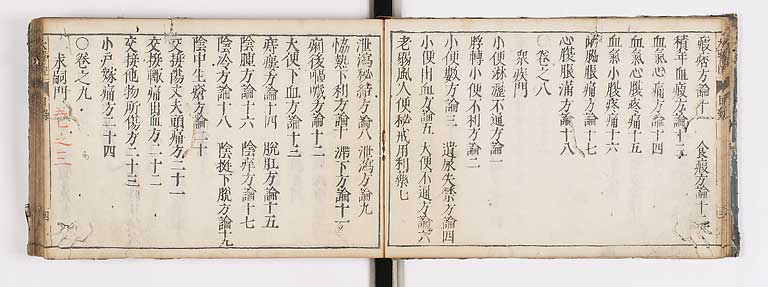 癥痞方論十　食癥方論十一
積年血癥方論十二
血氣心痛方論十四
血氣心腹疼痛十五
血氣小腹疼痛十六
脇脹痛方論十七
心腹脹滿方論十八
○卷之八
衆疾門
小便淋瀝不通方論一
脬轉小便不利方論二
小便數方論三　遺尿失禁方論四
小便出血方論五　大便不通方論六
老弱風人便秘戒用利藥七
泄瀉秘結方論八　泄瀉方論九
協熱下利方論十　滯下方論十一
痢後嘔噦方論十二
大便下血方論十三
痔瘻方論十四　脫肛方論十五
陰腫方論十六　陰痒方論十七
陰冷方論十八　陰挺下脫方論十九
陰中生瘡方論二十
交接傷丈夫頭痛方二十一
交接輒痛出血方二十二
交接他物所傷方二十三
小戶嫁痛方二十四
○卷之九
求嗣門
卷之三